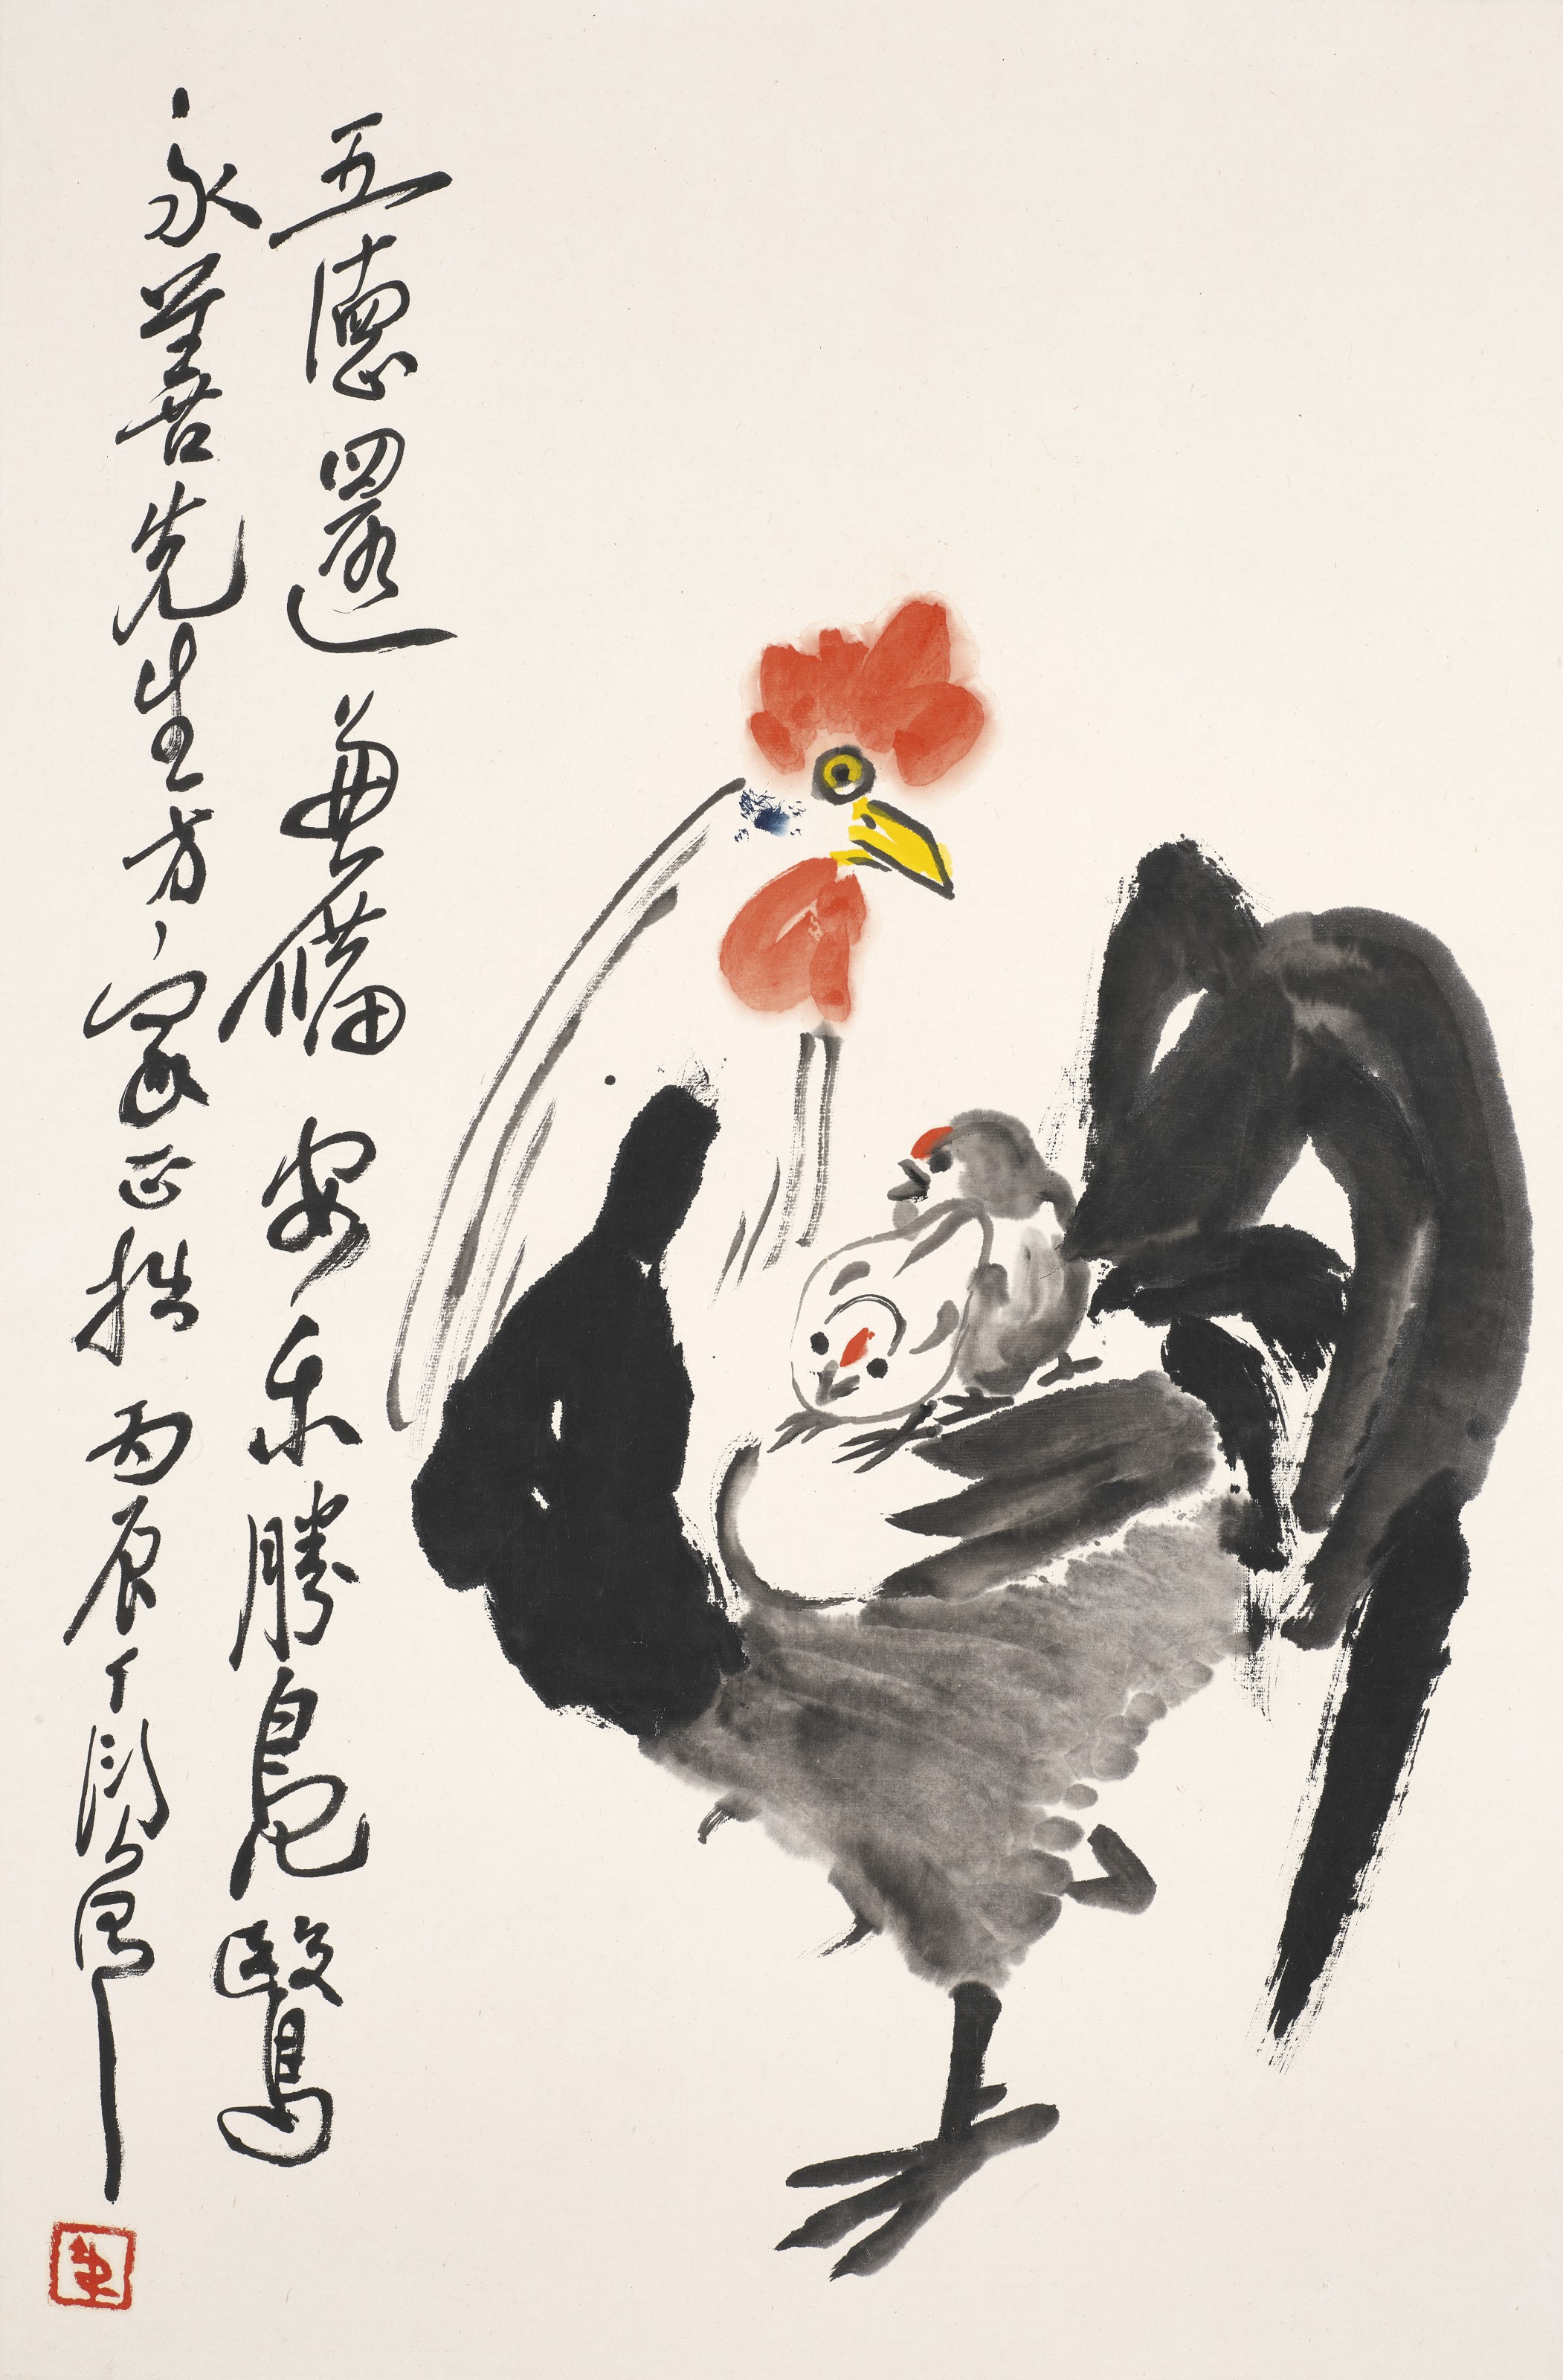 五德還兼備安樂勝鳧鷖
永善先生方家正拙丙辰丁衍庸